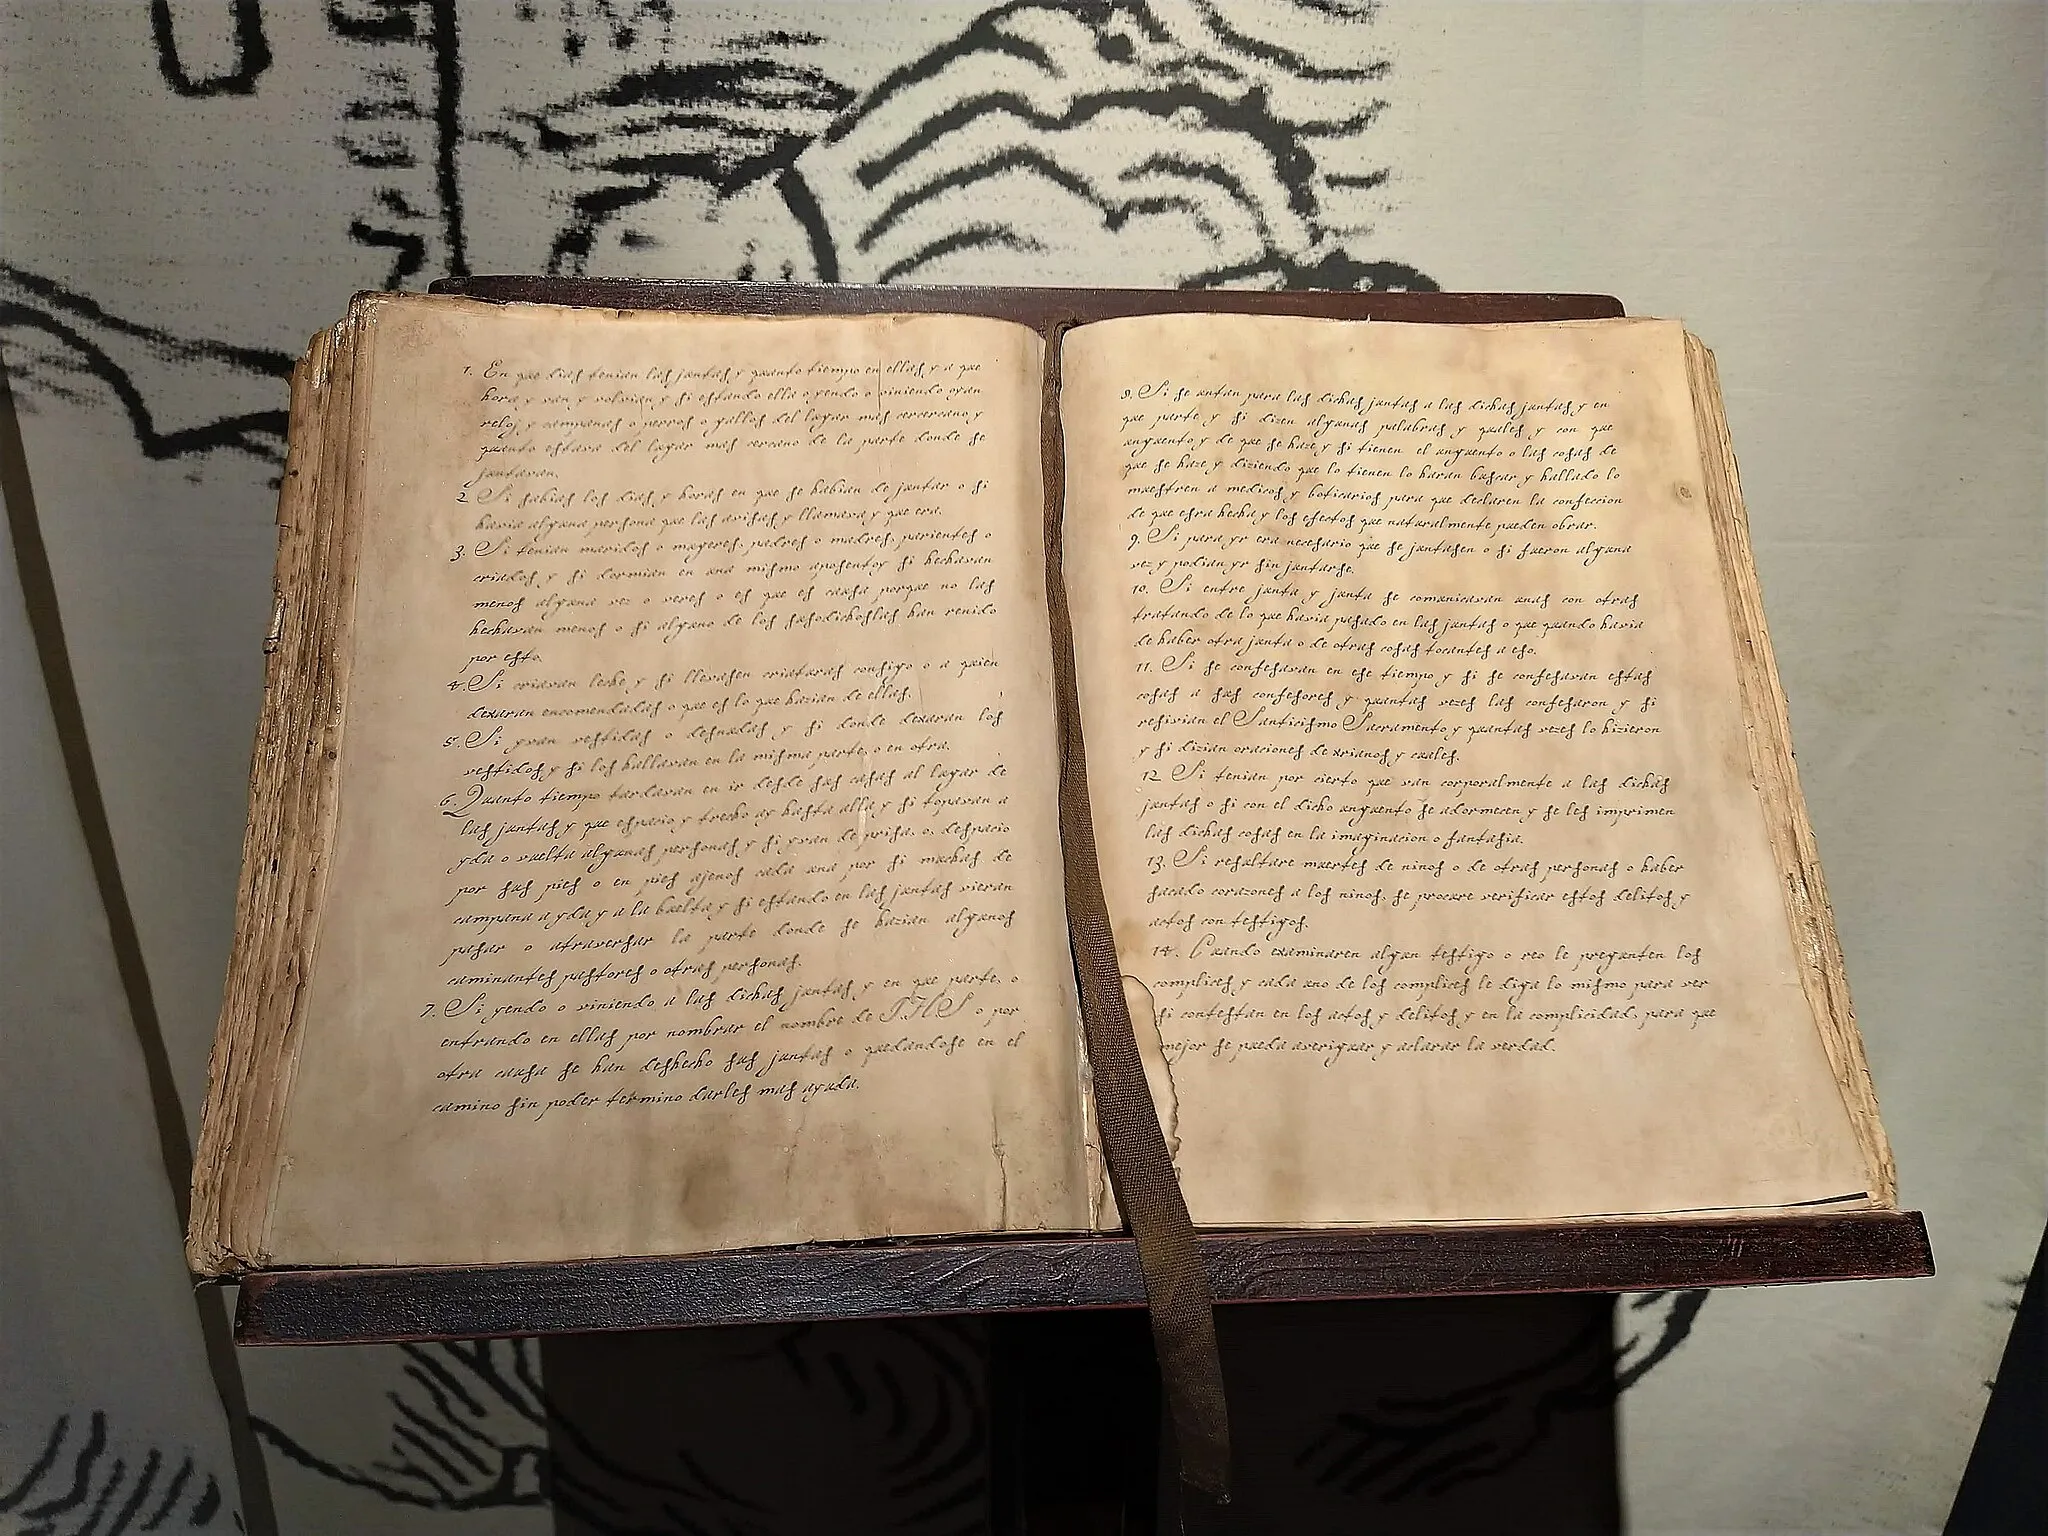 1. En que dias tenian las juntas y quanto tiempo en ellas y a que
hora y van y volvian y si estando ella o yendo o viniendo oyan
reloj y campanas o perros o gallos del lugar mas cercano y
quanto estava del lugar mas cercano de la parte donde se
juntavan.
2 Si sabias los dias y horas en que se habian de juntar o si
havia alguna persona que las avisas y llamava y que era.
3. Si tenian maridos o mugeres, padres o madres, parientes o
criados y si dormian en una mismo aposento y si hechavan
menos alguna vez o veces o es que es causa porque no las
hechavan menos o si alguno de los susodichos las han renido
por esto.
4. Si criavan leche y si llevasen criaturas consigo o a quien
dexaran encomendadas o que es lo que hazian de ellas.
5. Si yvan vestidas o desnudas y si donde dexaran los
vestidos y si los hallavan en la misma parte, o en otra.
6. Quanto tiempo tardavan en ir desde sus casas al lugar de
las juntas y que espacio y trecho ay hasta alla y si topavan a
yda o vuelta algunas personas y si yvan de prisa, o, despacio
por sus pies o en pies ajenos cada una por si muchas de
campana a yda y a la buelta y si estando en las juntas vieran
pasar o atraversar la parte donde se hazian algunos
caminantes pastores o otras personas.
7. Si yendo o viniendo a las dichas juntas y en que parte, o
entrando en ellas por nombrar el nombre de JHS o por
otra causa se han deshecho sus juntas o quedandose en el
camino sin poder termino darles mas ayuda.
8. Si se untan para las dichas juntas a las dichas juntas y en
que parte y si dizen algunas palabras y quales y con que
unguento y de que se haze y si tienen el unguento o las cosas de
que se haze y diziendo que lo tienen lo haran buscar y hallado lo
muestren a medicos y boticarios para que declaren la confeccion
de que esta hecha y los efectos que naturalmente pueden obrar.
9. Si para yr era necesario que se juntasen o si fueron alguna
vez y podian yr sin juntarse.
10. Si entre junta y junta se comunicavan unas con otras
tratando de lo que havia pasado en las juntas o que quando havia
de haber otra junta o de otras cosas tocantes a eso.
11. Si se confesavan en ese tiempo y si se confesavan estas
cosas a sus confesores y quantas vezes las confesaron y si
resivian el Santicismo Sacramento y quantas vezes lo hizieron
y si dizian oraciones de xrianos y cuales.
12 Si tenian por cierto que van corporalmente a las dichas
juntas o si con el dicho unguento se adormecen y se les imprimen
las dichas cosas en la imaginacion o fantasia.
13. Si resultare muertes de ninos o de otras personas o haber
sacado corazones a los ninos, se procure verificar estos delitos y
actos con testigos.
14. Cuando examinaren algun testigo o reo le pregunten los
complices y cada uno de los complices le diga lo mismo para ver
si contestan en los actos y delitos y en la complicidad, para que
mejor se pueda averiguar y aclarar la verdad.